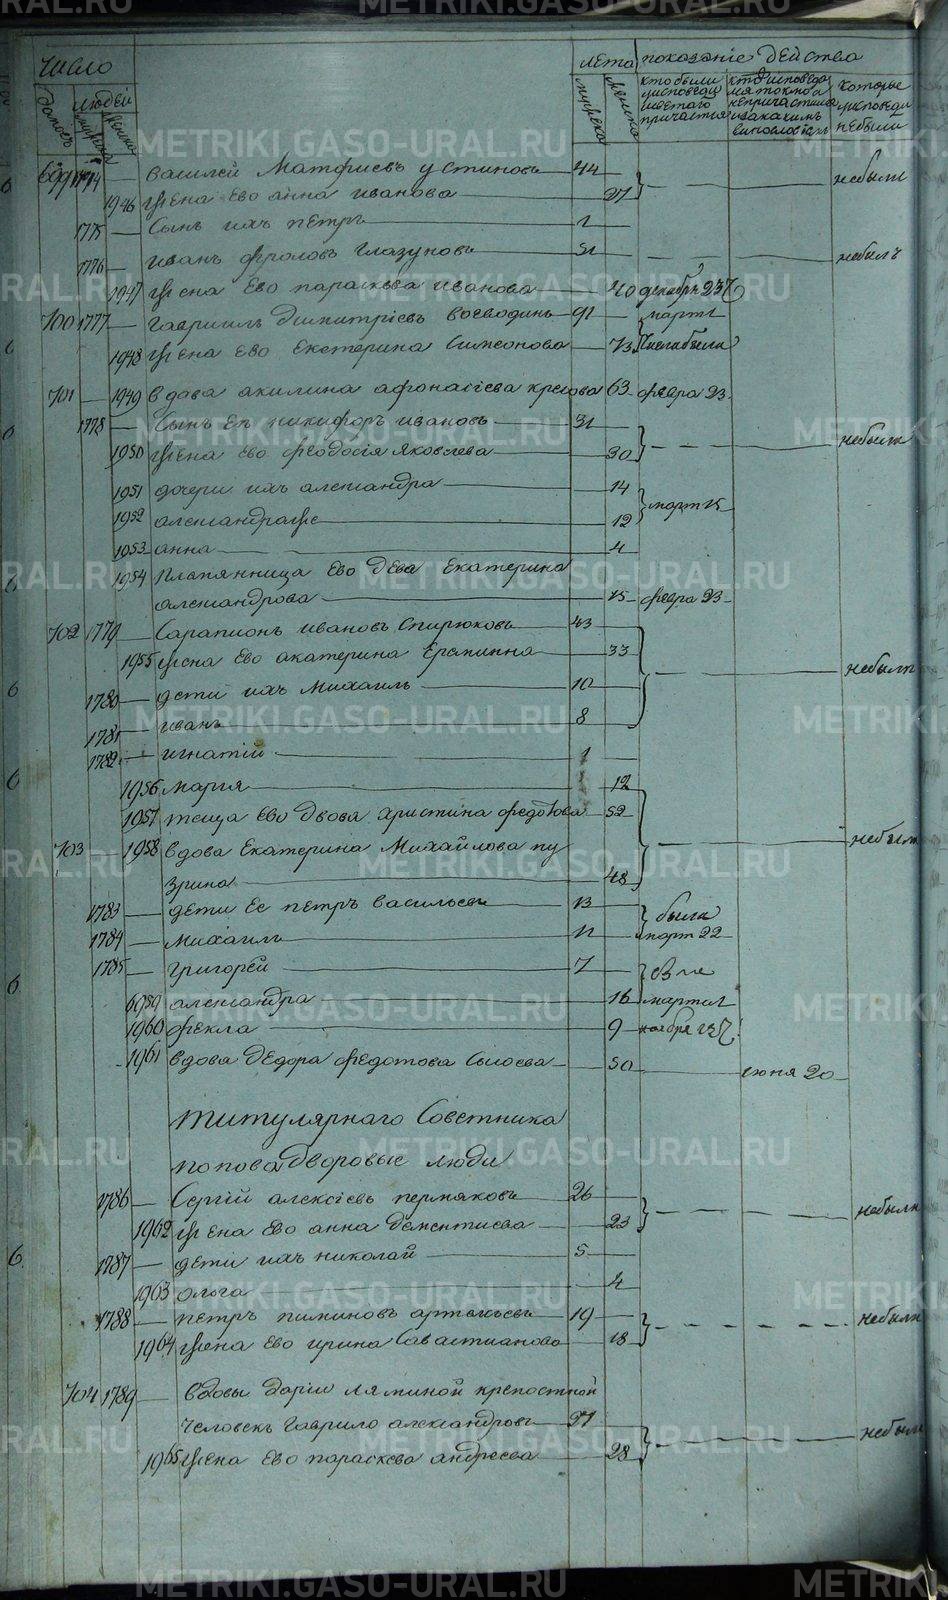 число лета показание действа
домовъ людей мужеска женска мужеска женска кто были у исповеди и святаго причастия которые у исповеди небыли
699 1774 василей Матфиевъ устиновъ 44 небыли
1946 жена ево анна иванова 27
1775 Сынъ ихъ петръ
1776 иванъ фроловъ глазуновъ 51 небылъ
1947 жена ево параскева иванова 40 декабря 25
700 1777 гавриилъ димитриевъ воеводинъ 91 марта
1948 жена ево екатерина симеонова 73
701 1949 вдова акилина афонасиева 63 февра 23
1778 Сынъ ея никифоръ ивановъ 31 небыли
1950 жена ево феодосия яковлева 30
1951 дочери ихъ александра 14 март 15
1952 александра же 12
1953 анна 4
1954 племянница ево дева екатерина
александрова 15 февра 23
702 1779 Сарапионъ ивановъ Спирюковъ 43
1955 жена ево акатерина 33 небыли
1780 дети ихъ Михаилъ 10
1781 иванъ 8
1782 игнатий 1
1956 мария 12
1957 теща ево вдова христина федотова 52
703 1958 вдова Екатерина Михайлова пу небыли
зрина 48
1783 дети ее петръ васильевъ 13 были
1784 михаилъ 11 март 22
1785 григорей 7
1959 александра 16 марта
1960 фекла 9 ноября
1961 вдова федотова Сысоева 50 июня 20
титулярнаго Советника
попова дворовые люди
1786 Сергий алексиевъ пермяковъ 26 небыли
1962 жена ево анна 23
1787 дети ихъ николай 5
1963 олга 4
1788 петръ пиминовъ 19 небыли
1964 жена ево ирина Савастианова 18
704 1789 вдовы дарии ляминой крепостной
человекъ гаврило александровъ 27 небыли
1965 жена ево параскева андреева 28
METRIKI.GASO-URAL.RU